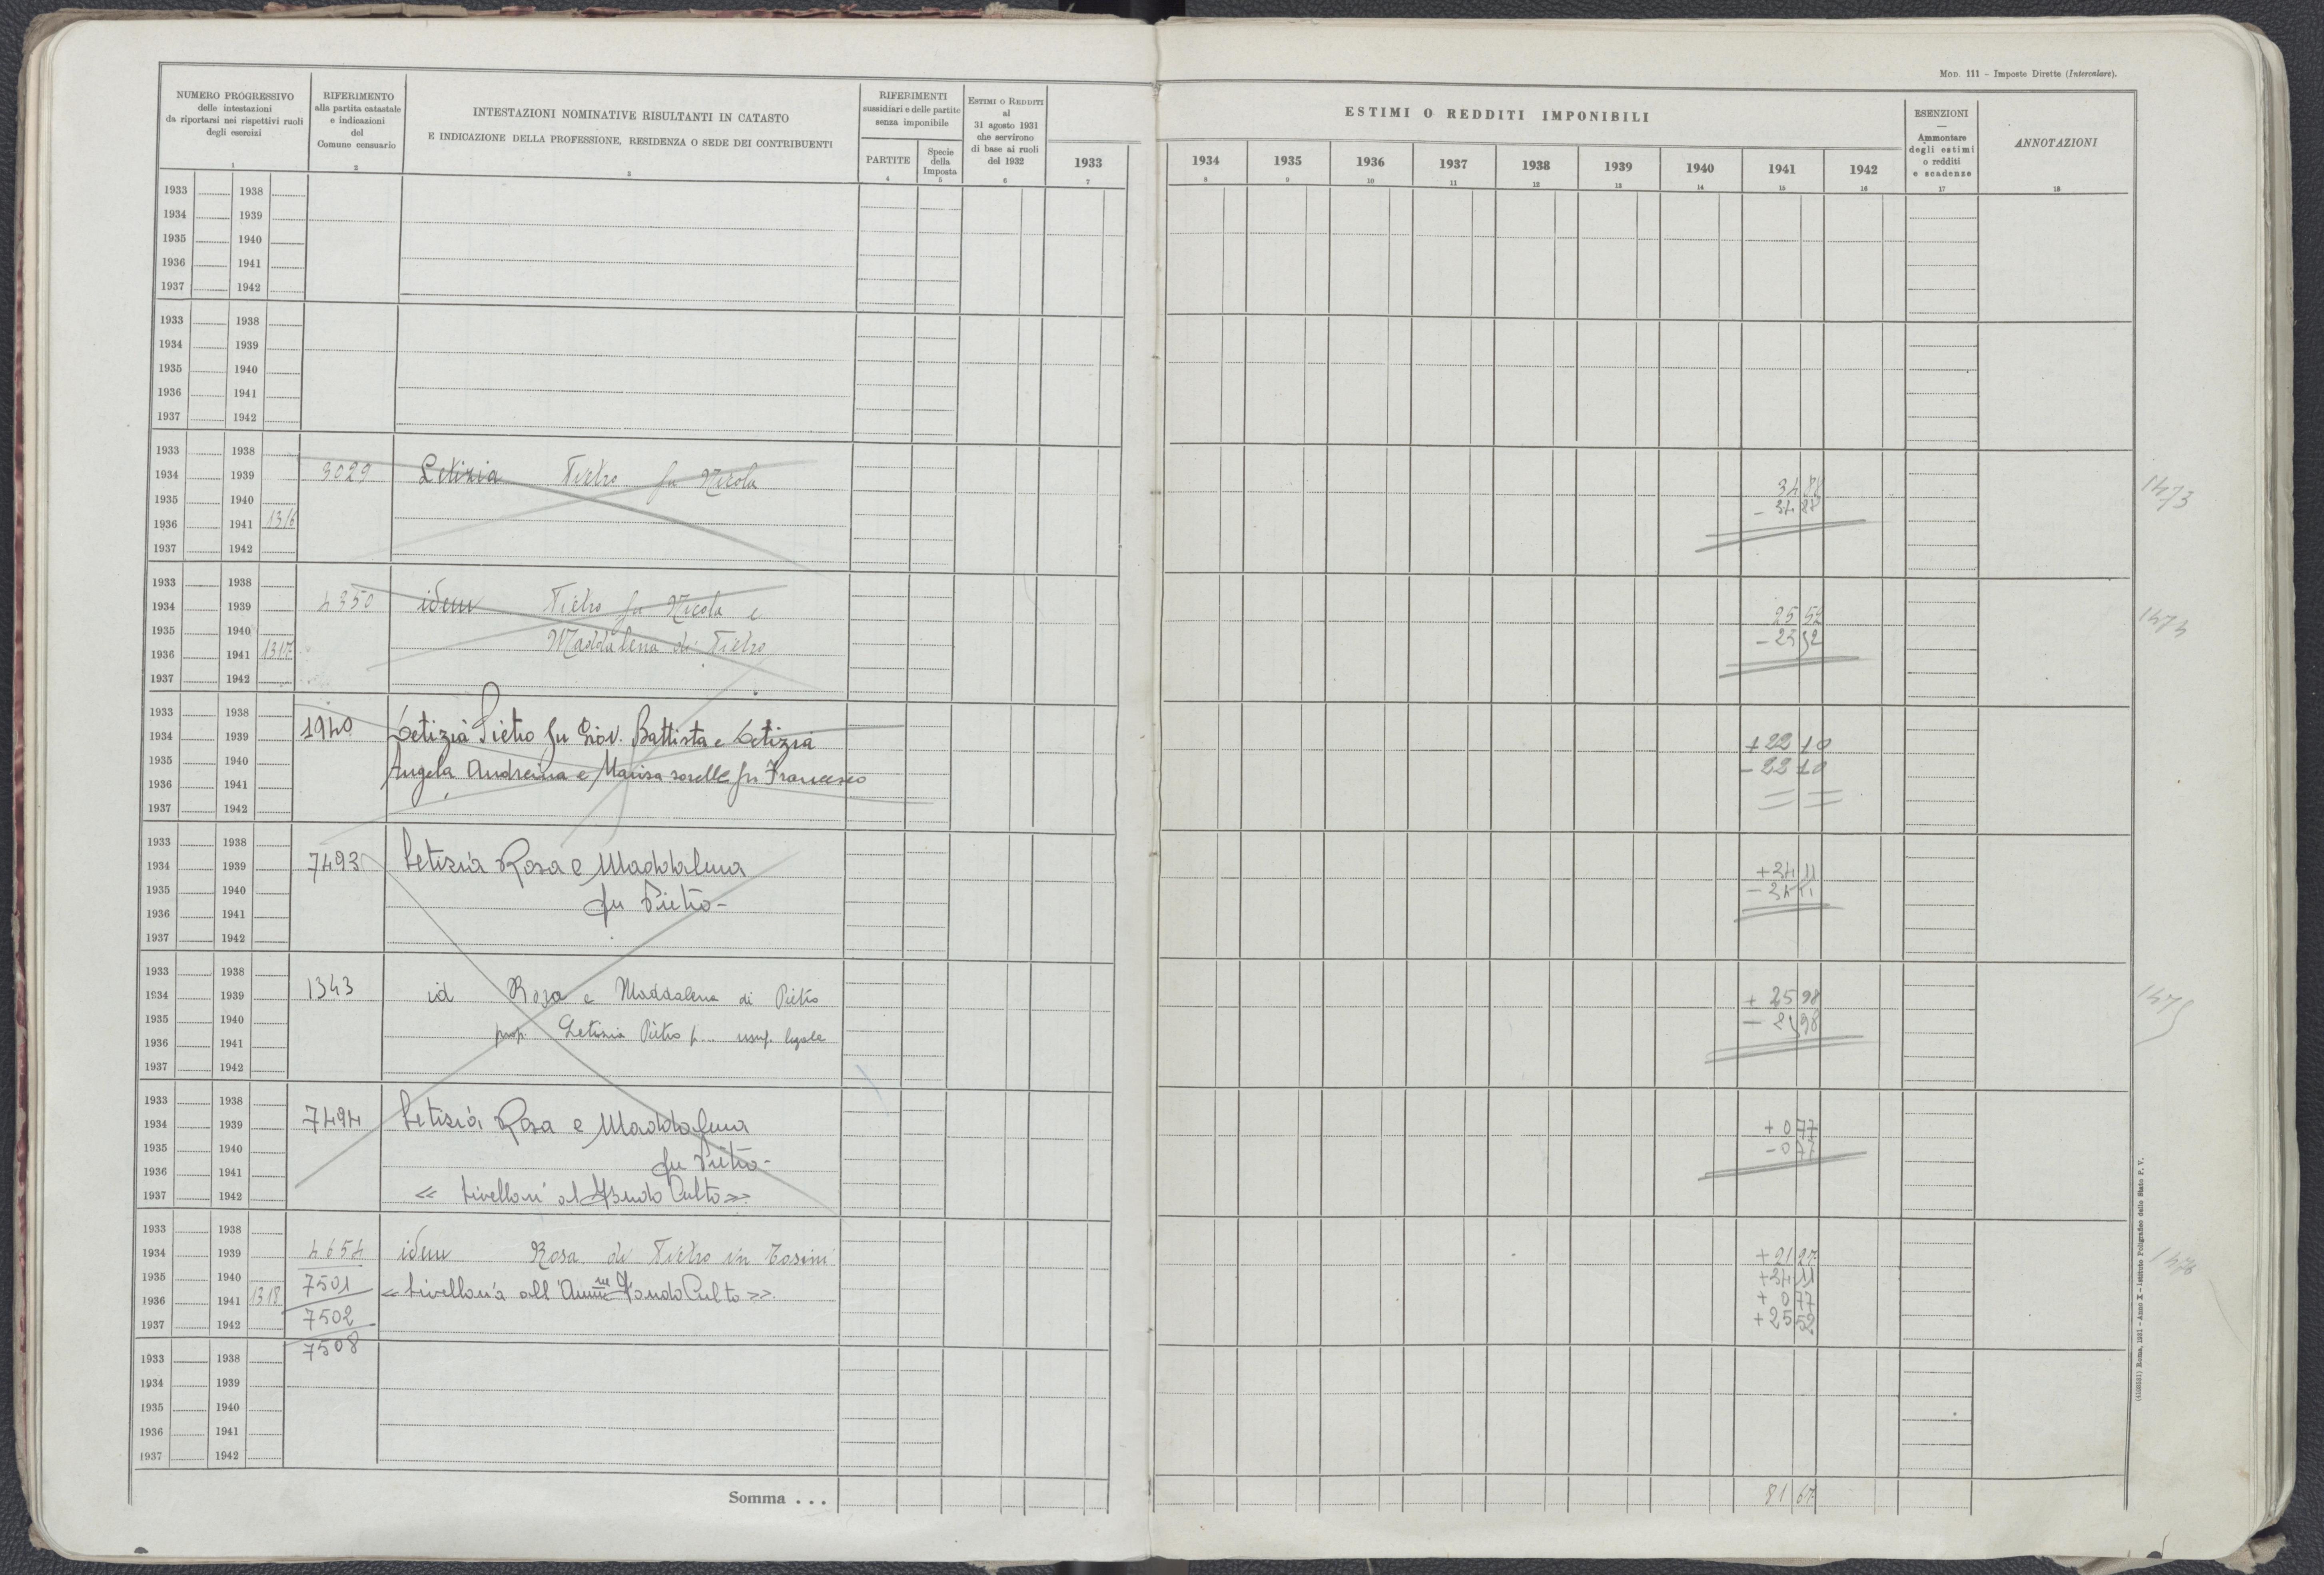 MOD. 111 - Imposte Dirette (Intercalare).
NUMERO PROGRESSIVO
delle intestazioni
da riportarsi nei rispettivi ruoli
degli esercizi
1
RIFERIMENTO
alla partita catastale
e indicazioni
del
Comune censuario
2
INTESTAZIONI NOMINATIVE RISULTANTI IN CATASTO
E INDICAZIONE DELLA PROFESSIONE, RESIDENZA O SEDE DEI CONTRIBUENTI
3
RIFERIMENTI
sussidiari e delle partite
senza imponibile
PARTITE
4
Specie
della
Imposta
5
ESTIMI O REDDITI
al
31 agosto 1931
che servirono
di base ai ruoli
del 1932
6
1933
7
ESTIMI O REDDITI IMPONIBILI
1934 1935 1936 1937 1938 1939 1940 1941 1942
8 9 10 11 12 13 14 15 16
ESENZIONI
Ammontare
degli estimi
o redditi
e scadenze
17
ANNOTAZIONI
18
1933 1938
1934 1939
1935 1940
1936 1941
1937 1942
1933 1938
1934 1939
1935 1940
1936 1941
1937 1942
1933 1938
1934 1939 3029 Letizia Pietro fu Nicola 34 88 1473
1935 1940 - 34 88
1936 1941 1316
1937 1942
1933 1938
1934 1939 4350 idem Pietro fu Nicola e 25 52 1474
1935 1940 Maddalena di Pietro - 25 52
1936 1941 1317
1937 1942
1933 1938
1934 1939 1940 Letizia Pietro fu Giov. Battista e Letizia + 22 10
1935 1940 Angela Andreina e Marisa sorelle fu Francesco - 22 10
1936 1941
1937 1942
1933 1938
1934 1939 7493 Letizia Rosa e Maddalena + 34 11
1935 1940 fu Pietro - - 34 11
1936 1941
1937 1942
1933 1938
1934 1939 1343 id Rosa e Maddalena di Pietro + 25 98 1475
1935 1940 prop. Letizia Pietro f... usuf. legale - 25 98
1936 1941
1937 1942
1933 1938
1934 1939 7494 Letizia Rosa e Maddalena + 0 77
1935 1940 fu Pietro - - 0 77
1936 1941
1937 1942 « livellari al Fondo Culto »
1933 1938
1934 1939 4654 idem Rosa di Pietro in Tosini + 21 27 1476
1935 1940 7501 « livellaria all'Amm.ne Fondo Culto » + 34 11
1936 1941 1318 7502 + 0 77
1937 1942 + 25 52
7508
1933 1938
1934 1939
1935 1940
1936 1941
1937 1942
Somma . . . 81 67
Roma, 1931 - Anno X - Istituto Poligrafico dello Stato P. V.